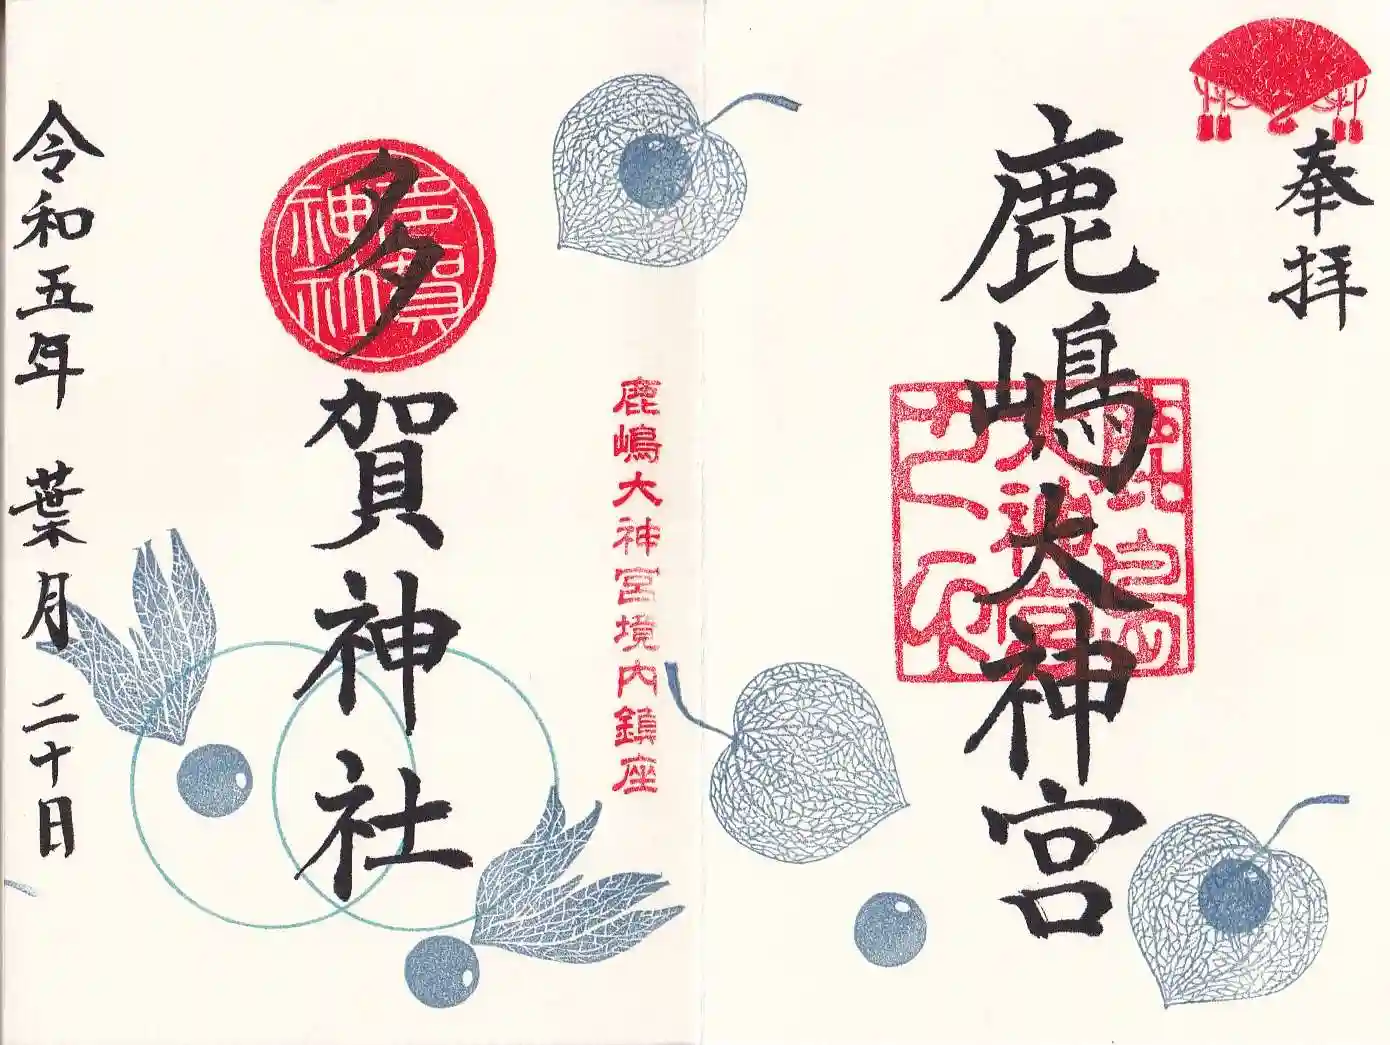 奉拝
鹿嶋大神宮
鹿嶋大神宮境内鎮座
多賀神社
多賀神社
令和五年 葉月 二十日